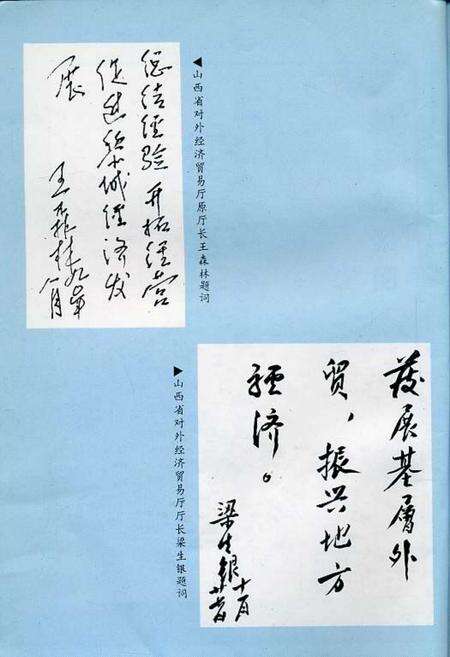 总结经验 开拓经营
促进黎城经济发
展
王森林 九〇年
八月
山西省对外经济贸易厅原厅长王森林题词
发展基层外
贸，振兴地方
经济。
梁生银
山西省对外经济贸易厅厅长梁生银题词